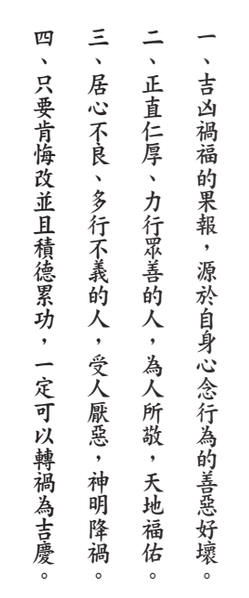 一、吉凶禍福的果報，源於自身心念行為的善惡好壞。
二、正直仁厚、力行眾善的人，為人所敬，天地福佑。
三、居心不良、多行不義的人，受人厭惡，神明降禍。
四、只要肯悔改並且積德累功，一定可以轉禍為吉慶。